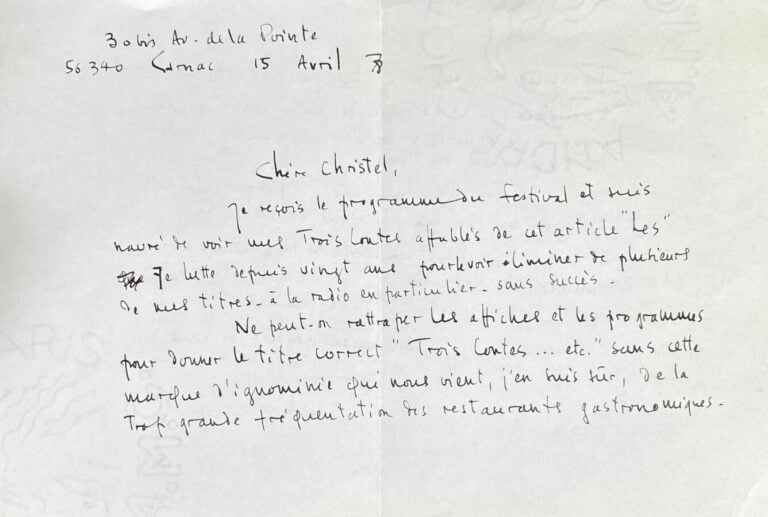 30 bis Av. de la Pointe
56340 Carnac 15 Avril
Chère Christel,
Je reçois le programme du festival et suis
navré de voir mes Trois Contes affublés de cet article "Les"
Je lutte depuis vingt ans pour le voir éliminer de plusieurs
de mes titres - à la radio en particulier - sans succès.
Ne peut-on rattraper les affiches et les programmes
pour donner le titre correct "Trois Contes... etc." sans cette
marque d'ignominie qui nous vient, j'en suis sûr, de la
Trop grande fréquentation des restaurants gastronomiques.